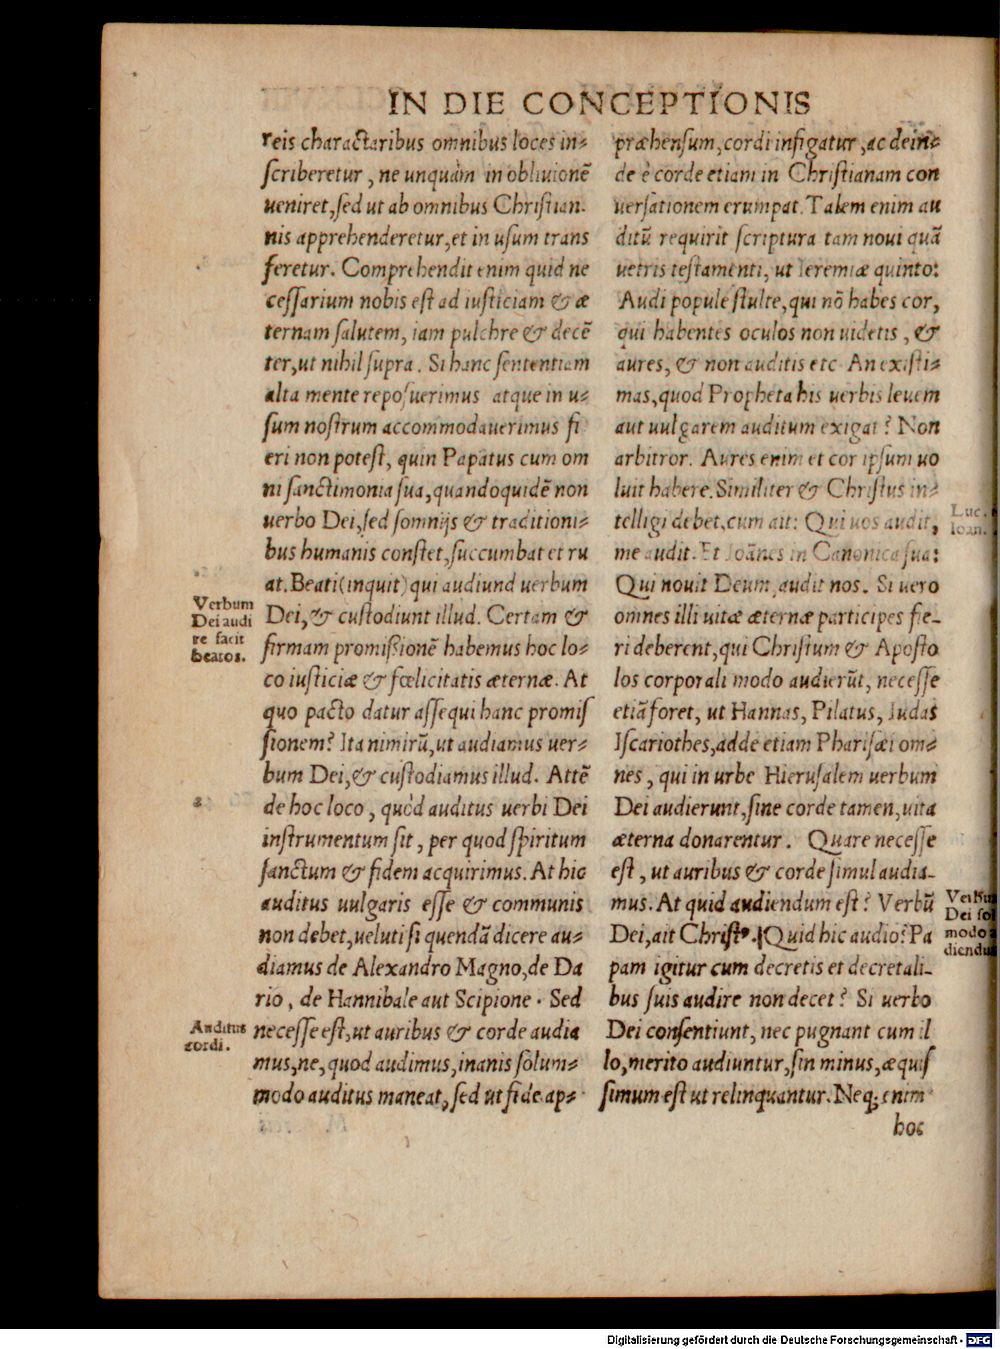 IN DIE CONCEPTIONIS
reis charactaribus omnibus loces in⸗
scriberetur, ne unquàm in obliuionẽ
ueniret, sed ut ab omnibus Christian⸗
nis apprehenderetur, et in usum trans
feretur. Comprehendit enim quid ne
cessarium nobis est ad iusticiam & æ
ternam salutem, iam pulchre & decẽ
ter, ut nihil supra. Si hanc sententiam
alta mente reposuerimus atque in u⸗
sum nostrum accommodauerimus fi
eri non potest, quin Papatus cum om
ni sanctimonia sua, quandoquidẽ non
uerbo Dei, sed somnijs & traditioni⸗
bus humanis constet, succumbat et ru
at. Beati (inquit) qui audiund uerbum
Dei, & custodiunt illud. Certam &
firmam promissionẽ habemus hoc lo⸗
co iusticiæ & fœlicitatis æternæ. At
quo pacto datur assequi hanc promis
sionem? Ita nimirũ, ut audiamus uer⸗
bum Dei, & custodiamus illud. Attẽ
de hoc loco, quòd auditus uerbi Dei
instrumentum sit, per quod spiritum
sanctum & fidem acquirimus. At hic
auditus uulgaris esse & communis
non debet, ueluti si quendã dicere au⸗
diamus de Alexandro Magno, de Da
rio, de Hannibale aut Scipione. Sed
necesse est, ut auribus & corde audia
mus, ne, quod audimus, inanis solum⸗
modo auditus maneat, sed ut fide ap⸗
Verbum
Dei audi
re facit
beatos.
Auditus
cordi.
præhensum, cordi infigatur, ac dein⸗
de è corde etiam in Christianam con
uersationem erumpat. Talem enim au
ditũ requirit scriptura tam noui quã
uetris testamenti, ut Ieremiæ quinto:
Audi popule stulte, qui nõ habes cor,
qui habentes oculos non uidetis, &
aures, & non auditis etc An existi⸗
mas, quod Propheta his uerbis leuem
aut uulgarem auditum exigat? Non
arbitror. Aures enim et cor ipsum uo
luit habere. Similiter & Christus in⸗
telligi debet, cum ait: Qui uos audit,
me audit. Et Ioãnes in Canonica sua:
Qui nouit Deum, audit nos. Si uero
omnes illi uitæ æternæ participes fie⸗
ri deberent, qui Christum & Aposto
los corporali modo audierũt, necesse
etiã foret, ut Hannas, Pilatus, Iudas
Iscariothes, adde etiam Pharisæi om⸗
nes, qui in urbe Hierusalem uerbum
Dei audierunt, sine corde tamen, uita
æterna donarentur. Quare necesse
est, ut auribus & corde simul audia⸗
mus. At quid audiendum est? Verbũ
Dei, ait Christꝰ. Quid hic audio? Pa
pam igitur cum decretis et decretali⸗
bus suis audire non decet? Si uerbo
Dei consentiunt, nec pugnant cum il
lo, merito audiuntur, sin minus, æquis
simum est ut relinquantur. Neq; enim
hoc
Luc.
Ioan.
Verbum
Dei sol
modo
diendu
Digitalisierung gefördert durch die Deutsche Forschungsgemeinschaft - DFG